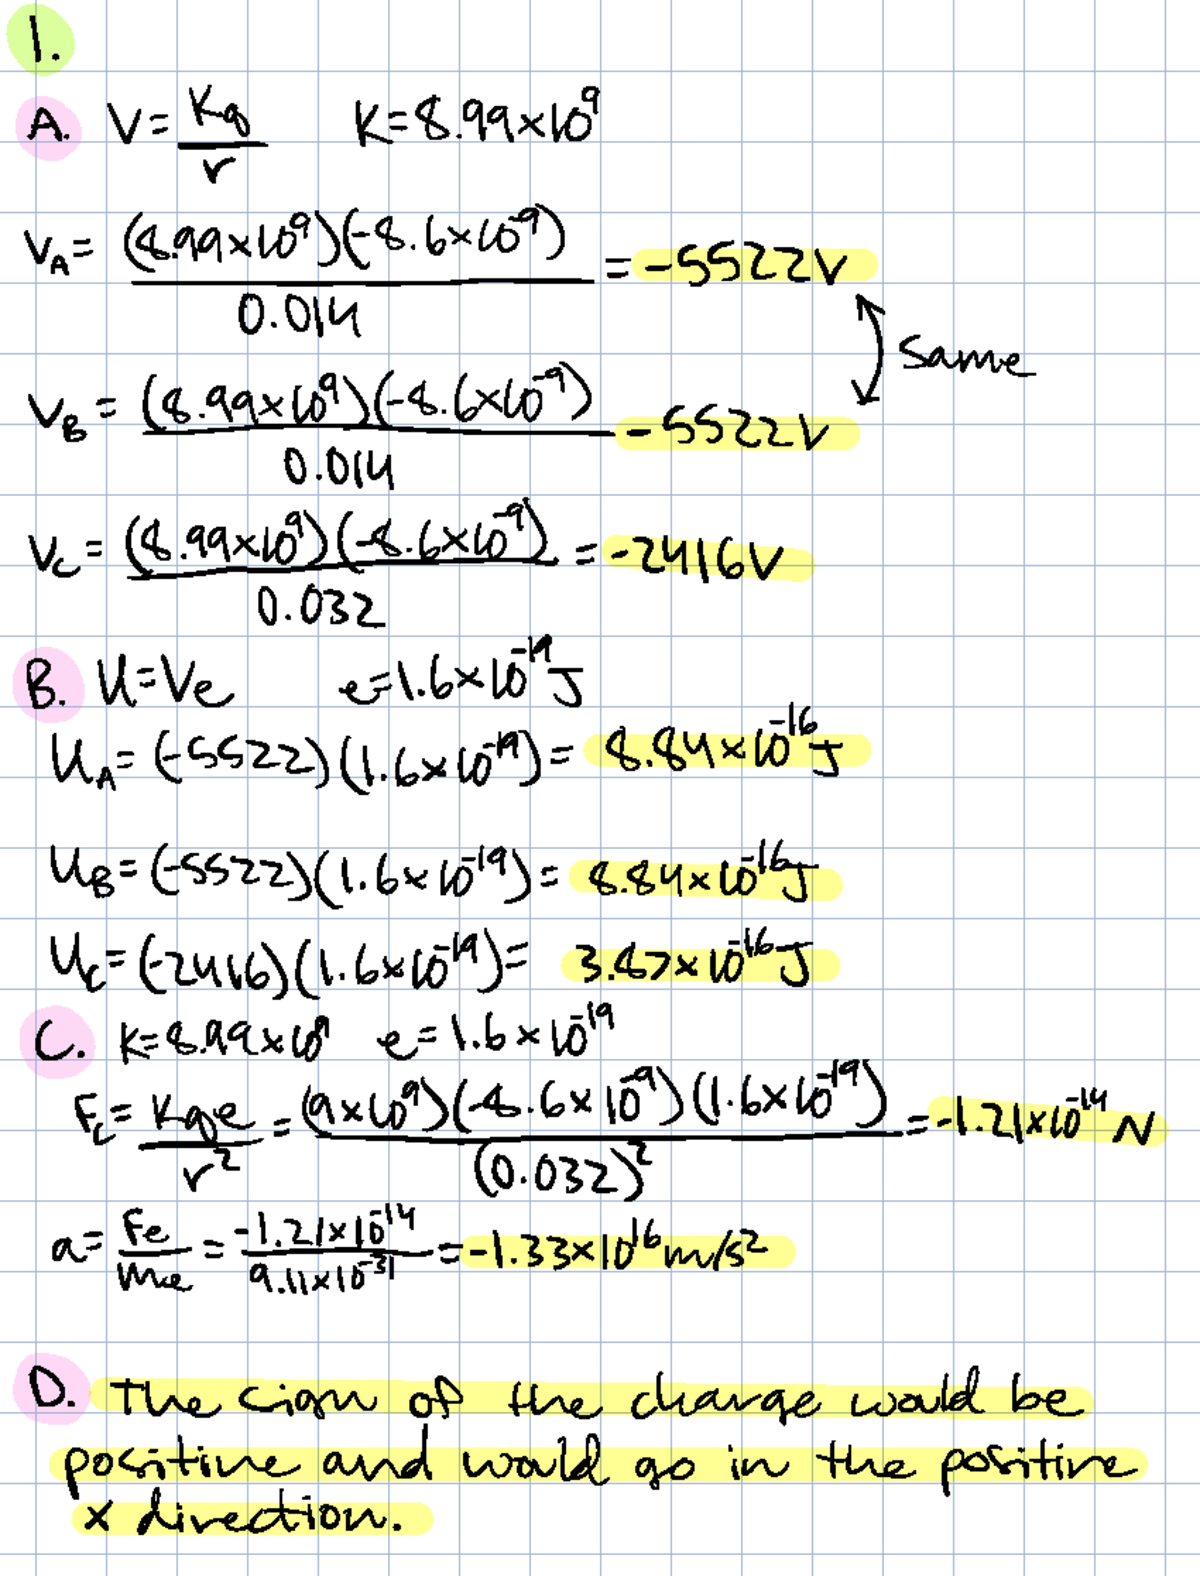 1.
A. V = Kq / r    K = 8.99×10⁹
V_A = (8.99×10⁹)(-8.6×10⁻⁹) / 0.014 = -5522V
Same
V_B = (8.99×10⁹)(-8.6×10⁻⁹) / 0.014 -5522V
V_C = (8.99×10⁹)(-8.6×10⁻⁹) / 0.032 = -2416V
B. U = Ve    e = 1.6×10⁻¹⁹J
U_A = (-5522)(1.6×10⁻¹⁹) = 8.84×10⁻¹⁶J
U_B = (-5522)(1.6×10⁻¹⁹) = 8.84×10⁻¹⁶J
U_C = (-2416)(1.6×10⁻¹⁹) = 3.87×10⁻¹⁶J
C. K = 8.99×10⁹    e = 1.6×10⁻¹⁹
F_C = Kqe / r² = (9×10⁹)(-8.6×10⁻⁹)(1.6×10⁻¹⁹) / (0.032)² = -1.21×10⁻¹⁴ N
a = Fe / me = -1.21×10⁻¹⁴ / 9.11×10⁻³¹ = -1.33×10¹⁶ m/s²
D. The sign of the charge would be
positive and would go in the positive
x direction.